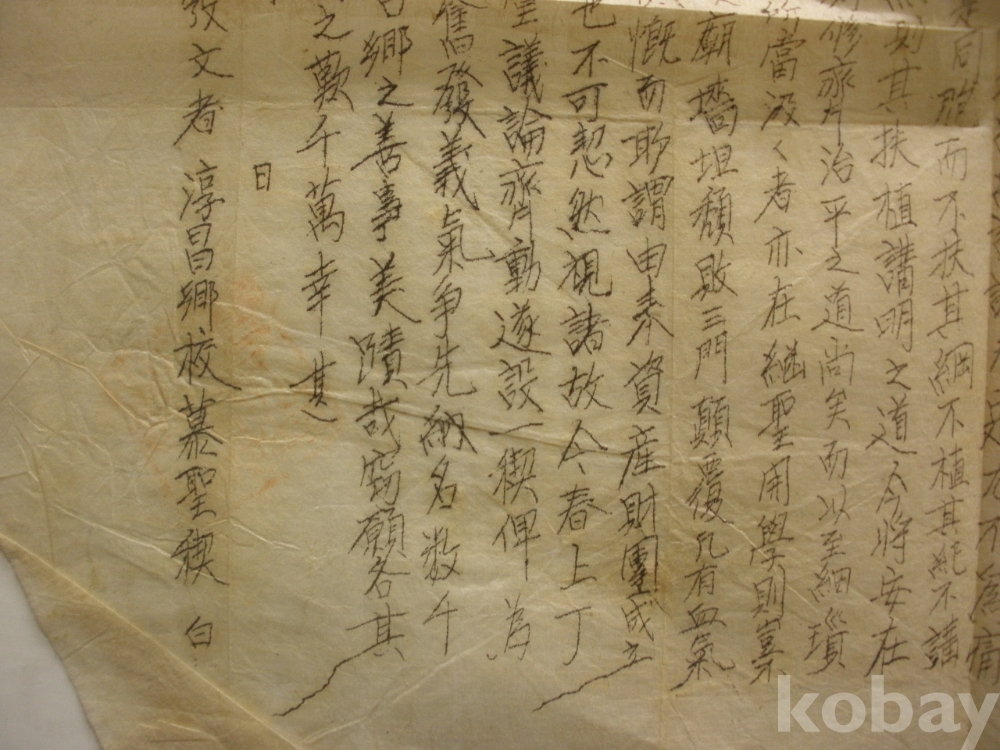 而不扶其綱不植其紀不講
則其扶植講明之道今將安在
修齊治平之道尚矣而以至細瑣
當汲々者亦在繼聖開學則崇
廟墻坦頹敗三門顚覆凡有血氣
慨而耶謂由来資産財團成立
也不可恝然視諸故今春上丁
議論齊動遂設一稧俾爲
奮發義氣爭先納名数千
鄕之善事美蹟哉窃願各其
之歎千萬幸甚
日
攷文者 淳昌鄕校慕聖稧 白
kobay